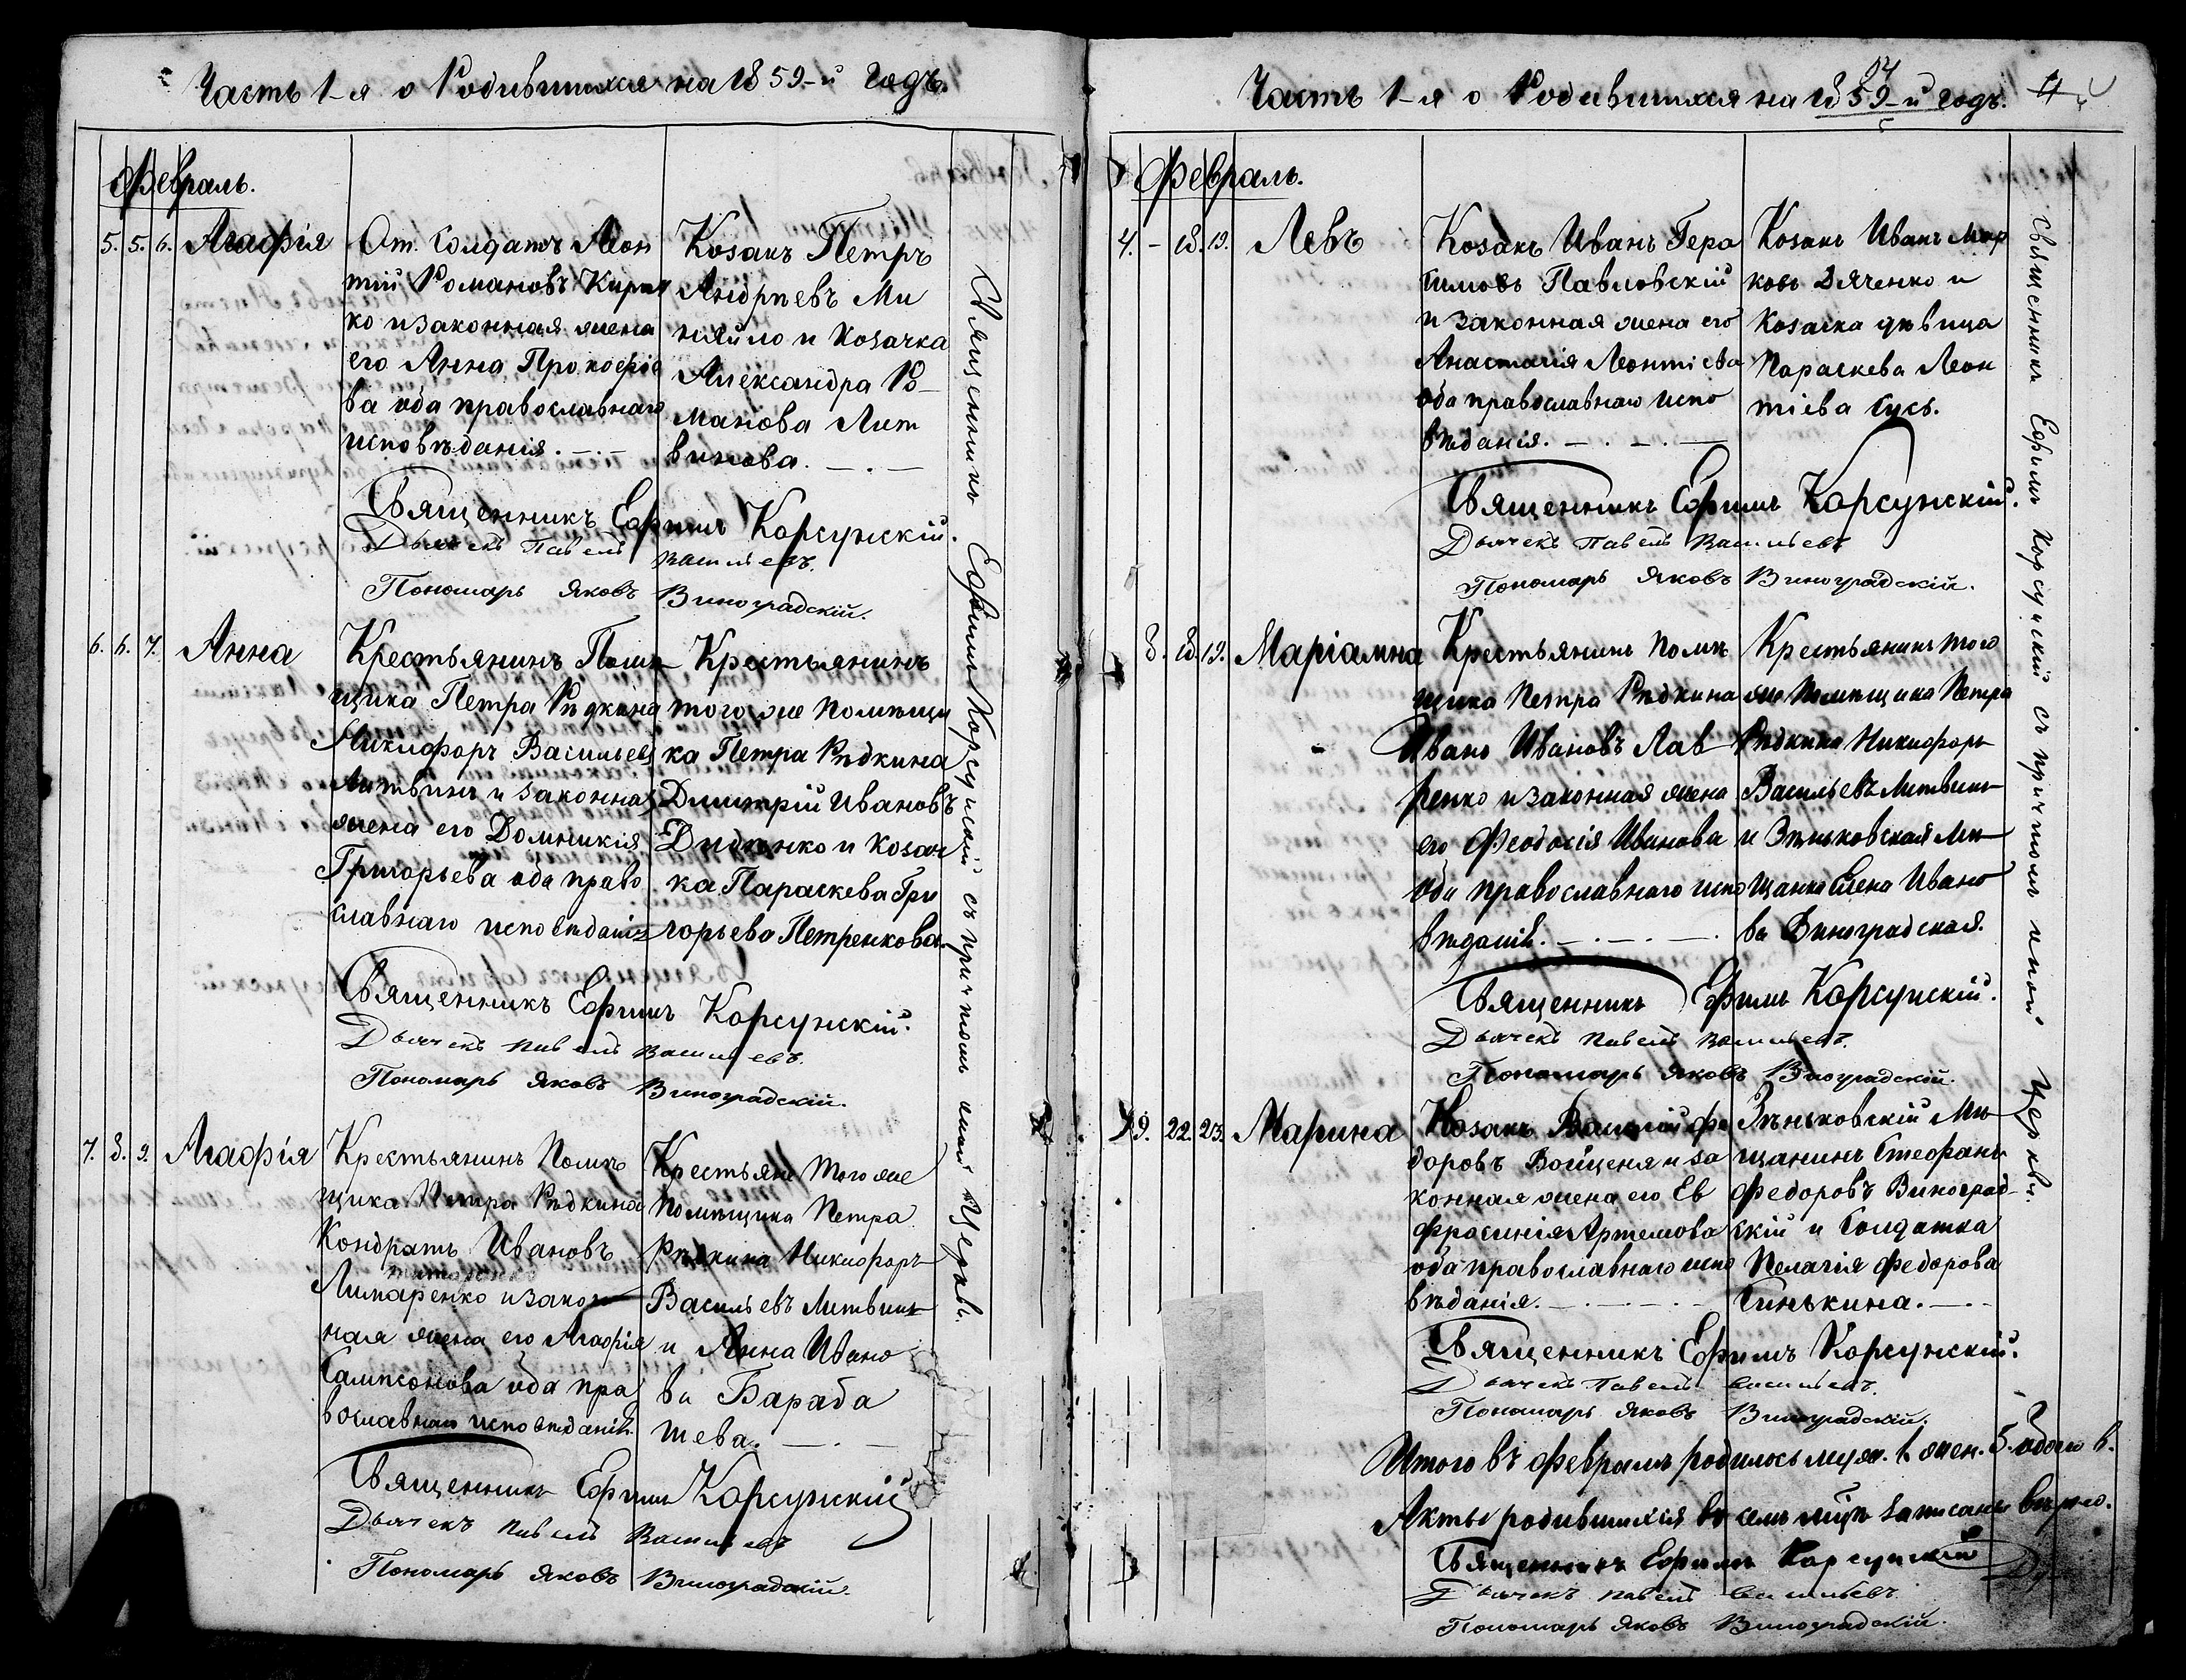 Часть 1-я о Родившихся на 1859-й годъ.
Февраль.
5. 5. 6. Агафія
От. Солдатъ Леон
тій Романовъ Кирич
ко и законная жена
его Анна Прокофіе
ва оба православнаго
исповѣданія.
Козакъ Петръ
Андрѣевъ Ми
няйло и Козачка
Александра Ро-
манова Лит
винова.
Священникъ Ефимъ Корсунскій.
Дьячекъ Павелъ Васильевъ.
Пономарь Яковъ Виноградскій.
6. 6. 7. Анна
Крестьянинъ Помѣ
щика Петра Рѣдкина
Никифоръ Васильевъ
Литвинъ и законная
жена его Домникія
Григорьева оба право
славнаго исповѣданія
Крестьянинъ
того же помѣщи
ка Петра Рѣдкина
Димитрій Ивановъ
Диденко и козач
ка Параскева Гри
горьева Петренкова.
Священникъ Ефимъ Корсунскій.
Дьячекъ Павелъ Васильевъ.
Пономарь Яковъ Виноградскій.
7. 8. 9. Агафія
Крестьянинъ Помѣ
щика Петра Рѣдкина
Кондратъ Ивановъ
Лимаренко и закон
ная жена его Агафія
Сампсонова оба пра
вославнаго исповѣданія.
Крестьян. того же
помѣщика Петра
Рѣдкина Никифоръ
Васильевъ Литвинъ
и Анна Ивано
ва Бараба
шева.
Священникъ Ефимъ Корсунскій
Дьячекъ Павелъ Васильевъ
Пономарь Яковъ Виноградскій.
Священникъ Ефимъ Корсунскій съ причтомъ Церкви.
Часть 1-я о Родившихся на 1859-й годъ. 4
Февраль.
4. - 18. 19. Левъ
Козакъ Иванъ Гера
симовъ Павловскій
и законная жена его
Анастасія Леонтіева
оба православнаго испо
вѣданія.
Козакъ Иванъ Мар
ковъ Дяченко и
Козачка дѣвица
Параскева Леон
тіева Гусь.
Священникъ Ефимъ Корсунскій.
Дьячекъ Павелъ Васильевъ
Пономарь Яковъ Виноградскій.
8. 18. 19. Маріамна
Крестьянинъ помѣ
щика Петра Рѣдкина
Иванъ Ивановъ Лав
ренко и законная жена
его Феодосія Иванова
оба православнаго испо
вѣданія.
Крестьянинъ того
же помѣщика Петра
Рѣдкина Никифоръ
Васильевъ Литвинъ
и Зѣньковская Мѣ
щанка Елена Ивано
ва Виноградская.
Священникъ Ефимъ Корсунскій.
Дьячекъ Павелъ Васильевъ.
Пономарь Яковъ Виноградскій.
9. 22. 23. Марина
Козакъ Василій Фе
доровъ Войценя и за
конная жена его Ев
фросинія Артемова
оба православнаго испо
вѣданія.
Зѣньковскій Мѣ
щанинъ Стефанъ
Федоровъ Виноград-
скій и Солдатка
Пелагія Федорова
Синькина.
Священникъ Ефимъ Корсунскій.
Дьячекъ Павелъ Васильевъ.
Пономарь Яковъ Виноградскій.
Итого въ февралѣ родилось муж. 1. жен. 5. обоего 6.
Акты родившихся въ семъ мѣцѣ записаны вѣрно.
Священникъ Ефимъ Корсунскій
Дьячекъ Павелъ Васильевъ.
Пономарь Яковъ Виноградскій.
Священникъ Ефимъ Корсунскій съ причтомъ Церкви.